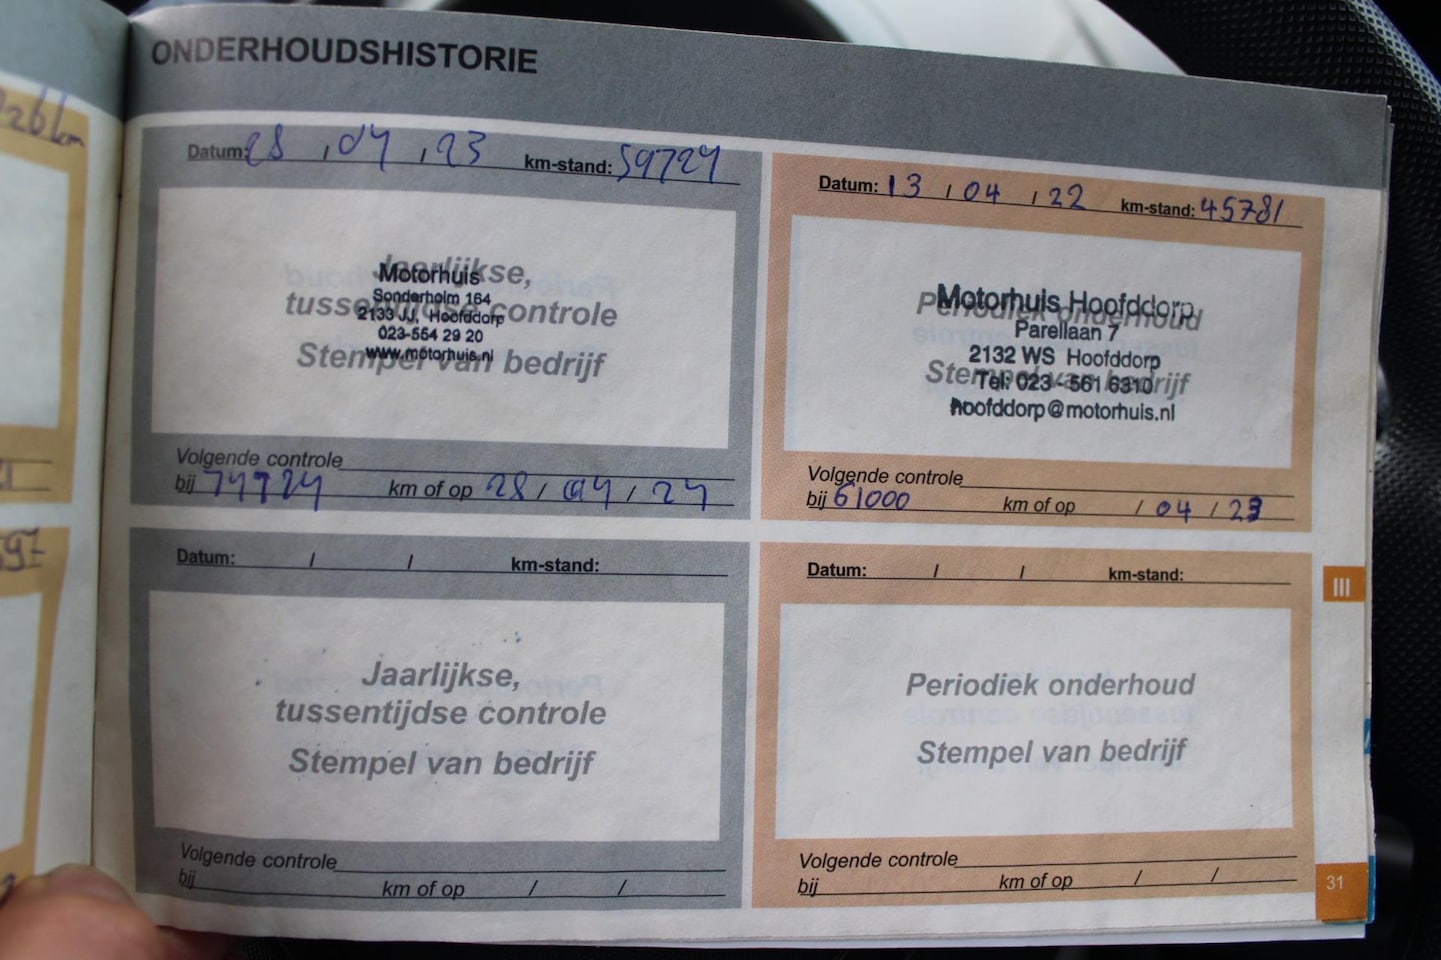 ONDERHOUDSHISTORIE
26 km
Datum: 28 , 04 , 23 km-stand: 59724
Jaarlijkse,
tussentijdse controle
Stempel van bedrijf
Motorhuis
Sonderholm 164
2133 JJ, Hoofddorp
023-554 29 20
www.motorhuis.nl
Volgende controle
bij 74724 km of op 28 / 04 / 24
Datum: 13 / 04 / 22 km-stand: 45781
Periodiek onderhoud
Stempel van bedrijf
Motorhuis Hoofddorp
Parellaan 7
2132 WS Hoofddorp
Tel: 023 - 561 6310
hoofddorp@motorhuis.nl
Volgende controle
bij 61000 km of op / 04 / 23
Datum: / / km-stand:
Jaarlijkse,
tussentijdse controle
Stempel van bedrijf
Volgende controle
bij km of op / /
Datum: / / km-stand:
Periodiek onderhoud
Stempel van bedrijf
Volgende controle
bij km of op / /
III
31